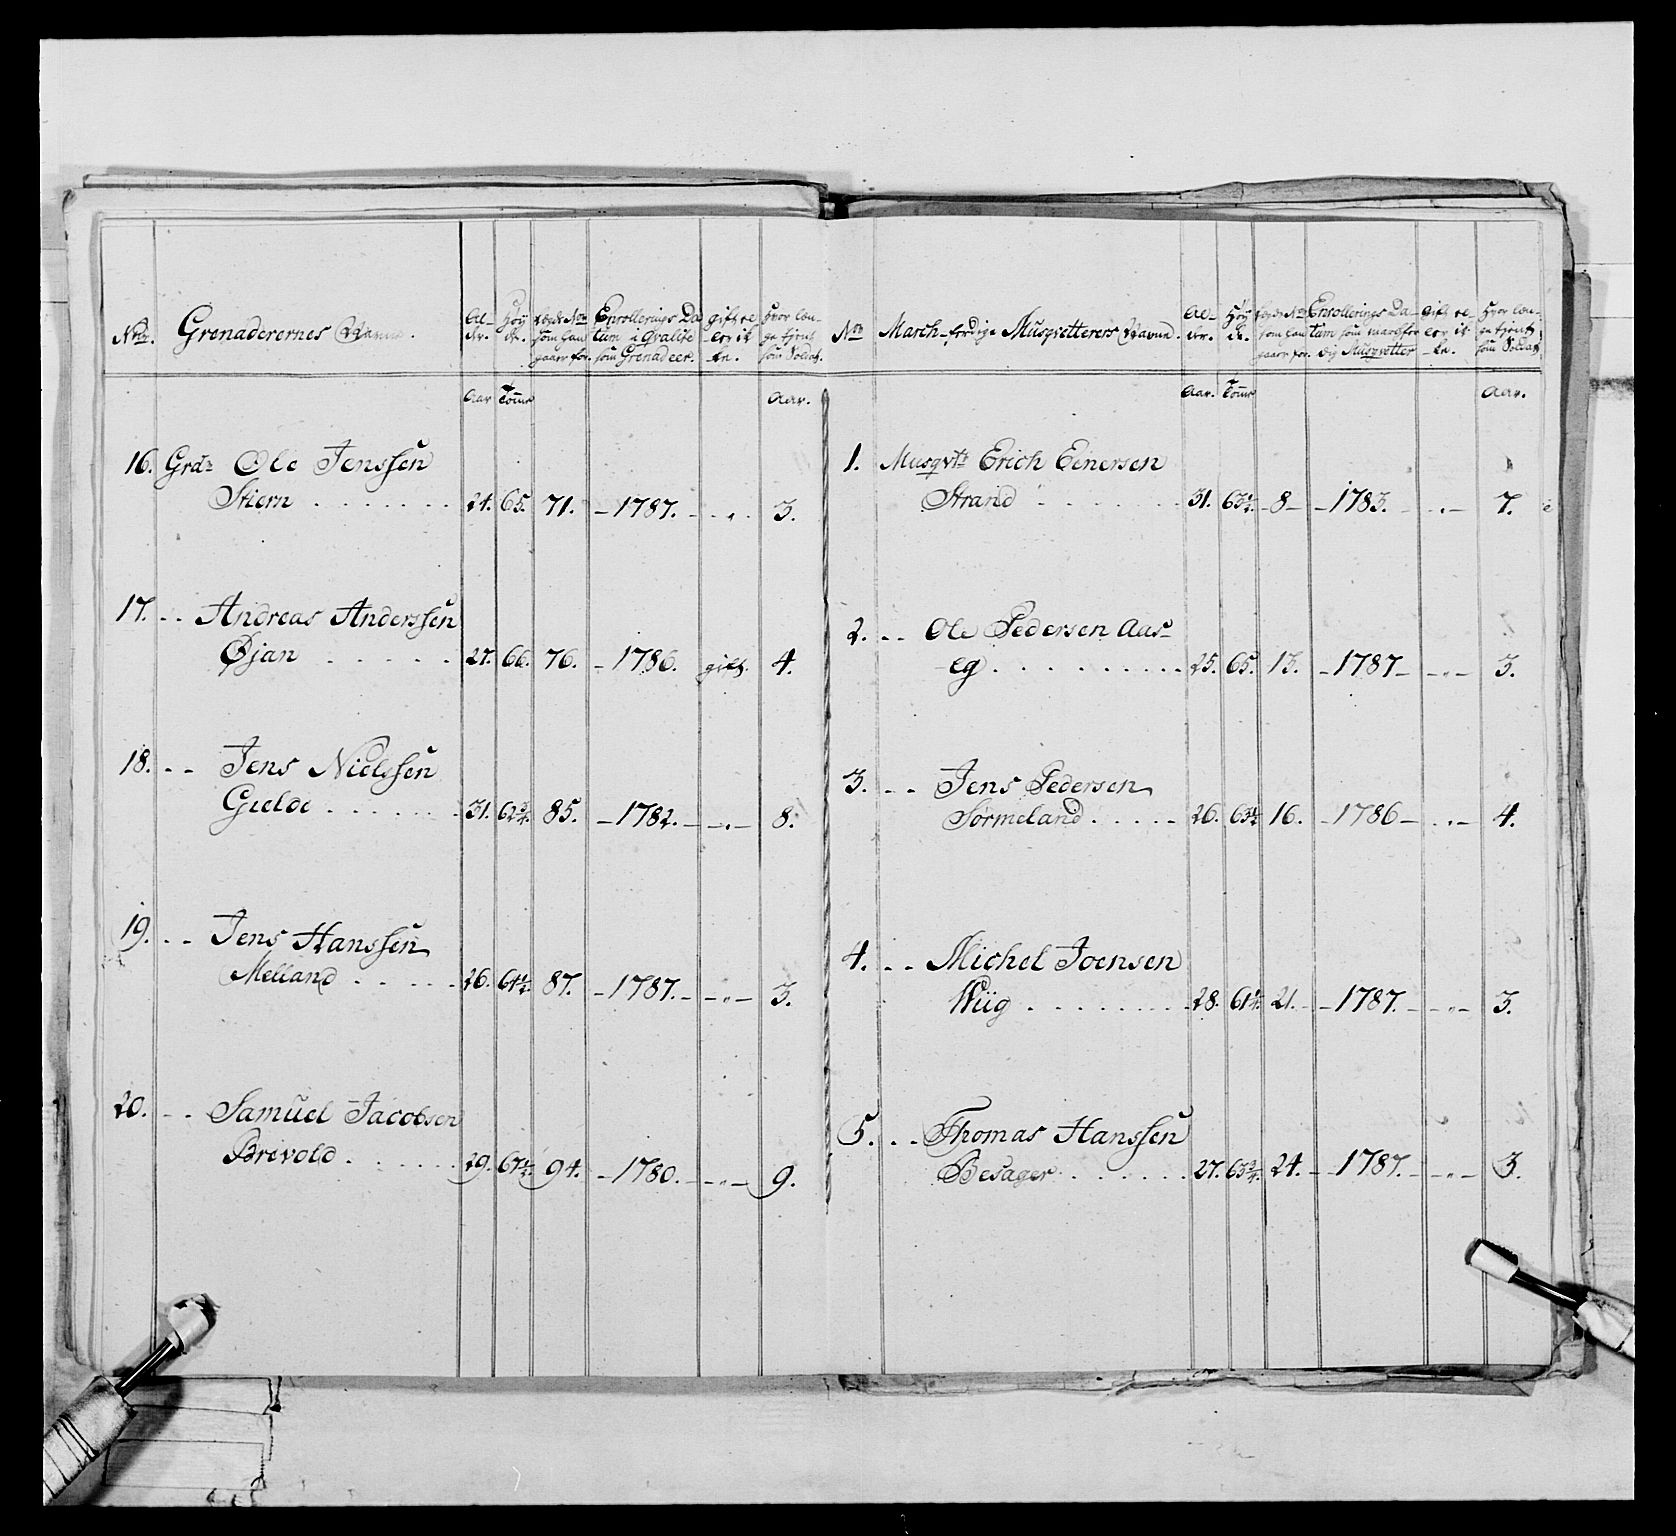 Nro. Grenaderernes Navne. Al- der. Høy de. som han gaar for. Enrollerings Da tum i Qvalite som Grenadeer. gift el- ler ik ke. Hvor læn- ge tient som Soldat.
Aar Tomr Aar.
16. Grdr Ole Jenssen
Stiern . . . . . . . 24. 65. 71. – 1787. - „ . 3.
17. - - Andreas Anderssen
Øjan . . . . . 27. 66. 76. – 1786. gift. 4.
18. - - Jens Nielssen
Gielde . . . . . . 31. 62 3/4. 85. – 1782. – - „ – 8.
19. - - Jens Hanssen
Melland . . . . . 26. 64 1/2. 87. – 1787. – - „ – 3.
20. - - Samuel Jacobsen
Brevold . . . . . . 29. 67 1/2. 94. – 1780. – - „ – 9.
Nro March-færdige Musqvetterers Navne. Al- der. Høy de. som han gaar for. Enrollerings Da- tum som marchfær dig Musqvetter gift el- ler ik ke. Hvor læn- ge tient som Soldat.
Aar. Tomr Aar.
1. Musqvtr Erich Einersen
Strand . . . . . . 31. 63 1/2. - 8 – – 1783. - „ – 7.
2. - - Ole Pedersen Aas-
eg . . . . . . . . . 25. 65. 13. – 1787 – - „ – 3.
3. - - Jens Pedersen
Sørmeland . . . . . 26. 63 1/2 16. – 1786 – . „ – 4.
4. - - Michel Joensen
Wiig . . . . . . . . 28. 61 1/4. 21. – 1787. – - „ – 3.
5. - - Thomas Hanssen
Besager . . . . . . 27. 63 3/4. 24. – 1787. – - „ – 3.